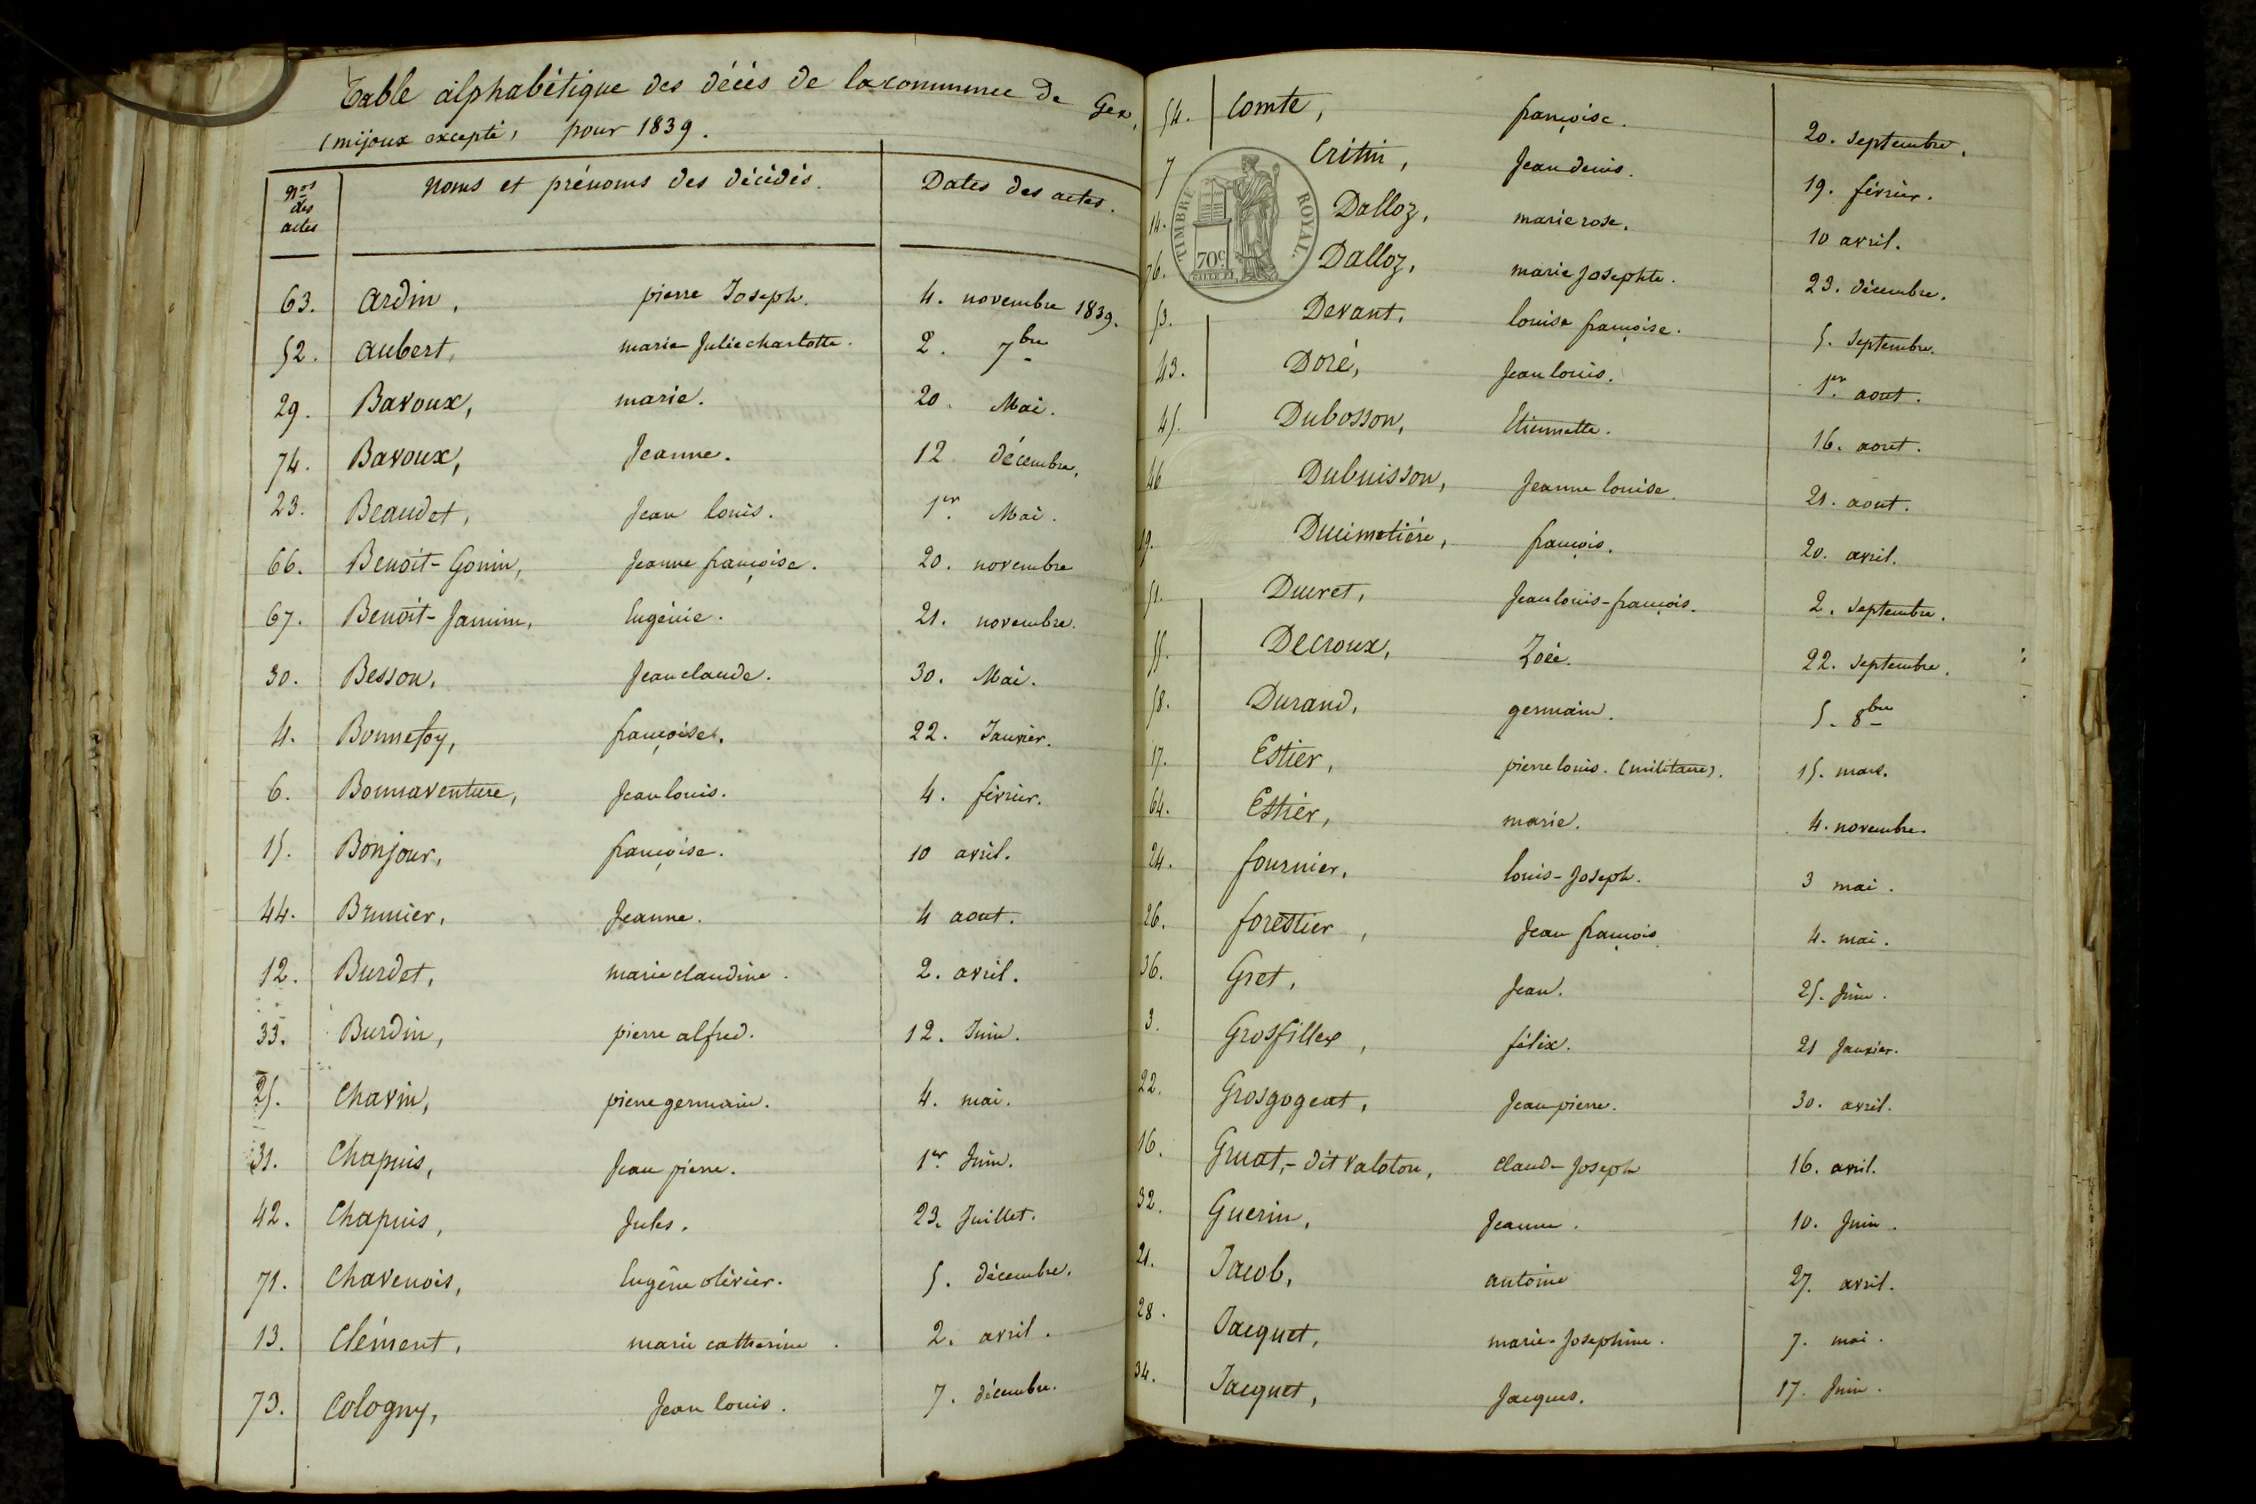 Table alphabétique des décès de la commune de Gex,
(mijoux excepté) pour 1839.
Nos des actes Noms et prénoms des décédés. Dates des actes.
63. Ardin, pierre Joseph. 4. novembre 1839.
52. Aubert, marie Julie charlotte. 2. 7bre
29. Bavoux, marie. 20. Mai.
74. Bavoux, Jeanne. 12 décembre,
23. Beaudet, Jean louis. 1er Mai.
66. Benoit-Gonin, Jeanne françoise. 20. novembre
67. Benoit-Jannin, Eugénie. 21. novembre.
30. Besson, Jean claude. 30. Mai.
4. Bonnefoy, françoise. 22. Janvier.
6. Bonnaventure, Jean louis. 4. février.
15. Bonjour, françoise. 10 avril.
44. Brunier, Jeanne. 4 aout.
12. Burdet, marie claudine. 2. avril.
33. Burdin, pierre alfred. 12. Juin.
25. Chavin, pierre germain. 4. mai.
31. Chapuis, Jean pierre. 1er Juin.
42. Chapuis, Jules. 23. Juillet.
71. Chavenois, Eugêne olivier. 5. décembre.
13. Clément, marie catherine. 2. avril.
73. Cologny, Jean louis. 7. décembre.
54. Comte, françoise. 20. septembre.
7 Critin, Jean denis. 19. février.
14. Dalloz, marie rose. 10 avril.
76. Dalloz, marie Josephte. 23. décembre.
53. Devant, louise françoise. 5. septembre.
43. Doré, Jean louis. 1er aout.
45. Dubosson, Etiennette. 16. aout.
46 Dubuisson, Jeanne louise. 21. aout.
19. Ducimetière, françois. 20. avril.
51. Ducret, Jean louis-françois. 2. septembre.
55. Decroux, Zoée. 22. septembre.
58. Durand, germain. 5. 8bre
17. Estier, pierre louis. (militaire). 15. mars.
64. Estier, marie. 4. novembre.
24. fournier, louis-Joseph. 3 mai.
26. forestier, Jean françois 4. mai.
36. Gret, Jean. 25. Juin.
3. Grosfillex, félix. 21 Janvier.
22. Grosgogeat, Jean pierre. 30. avril.
16. Gruat,-dit valoton, Claude-Joseph 16. avril.
32. Guerin, Jeanne. 10. Juin.
21. Jacob, antoine 27. avril.
28. Jacquet, marie-Josephine. 7. mai.
34. Jacquet, Jacques. 17. Juin.
TIMBRE ROYAL.
70c